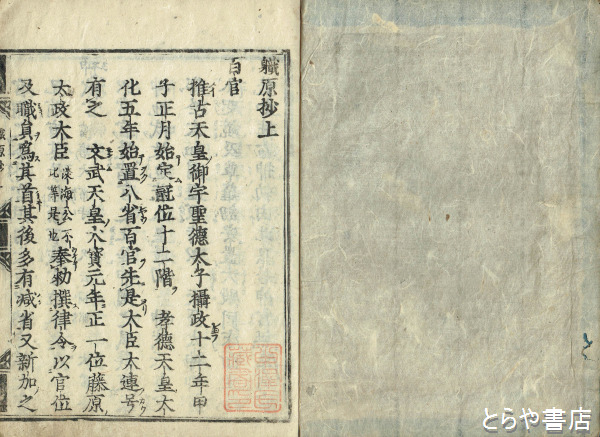 職原抄上
百官
推古天皇御宇聖德太子攝政十二年甲
子正月始定冠位十二階 孝德天皇大
化五年始置八省百官先是大臣大連号
有之 文武天皇大寶元年正一位藤原
太政大臣 淡海公不比等是也 奉勅撰律令以官位
及職員爲其首其後多有减省又新加之
とらや書店